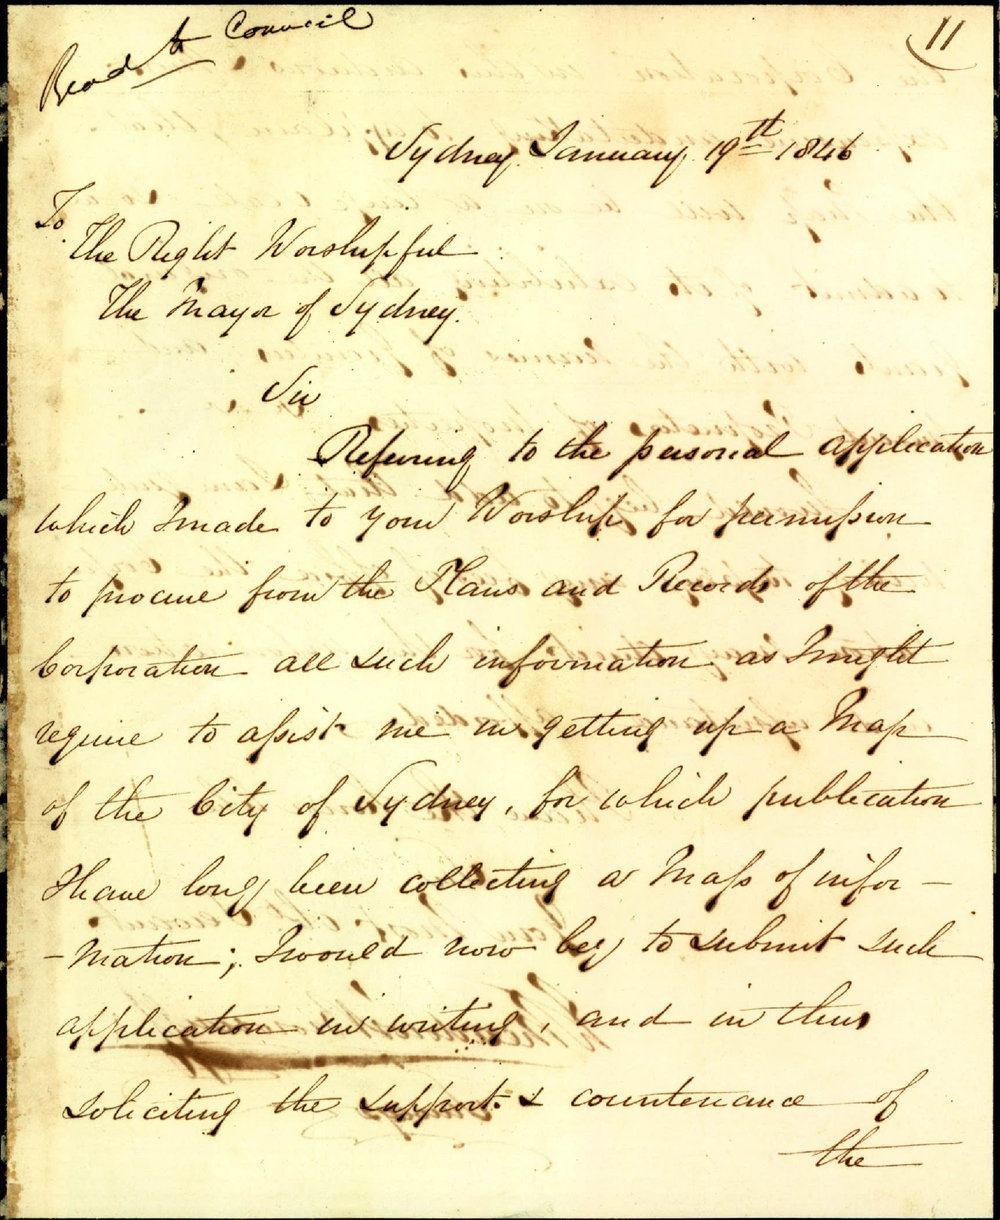 Read to Council
11
Sydney January 19th 1846
To
The Right Worshipful
The Mayor of Sydney.
Sir
Referring to the personal application
which I made to your Worship for permission
to procure from the Plans and Records of the
Corporation all such information as I might
require to assist me in getting up a Map
of the City of Sydney, for which publication
I have long been collecting a Mass of infor-
-mation; I would now beg to submit such
application in writing, and in thus
soliciting the support & countenance of
the